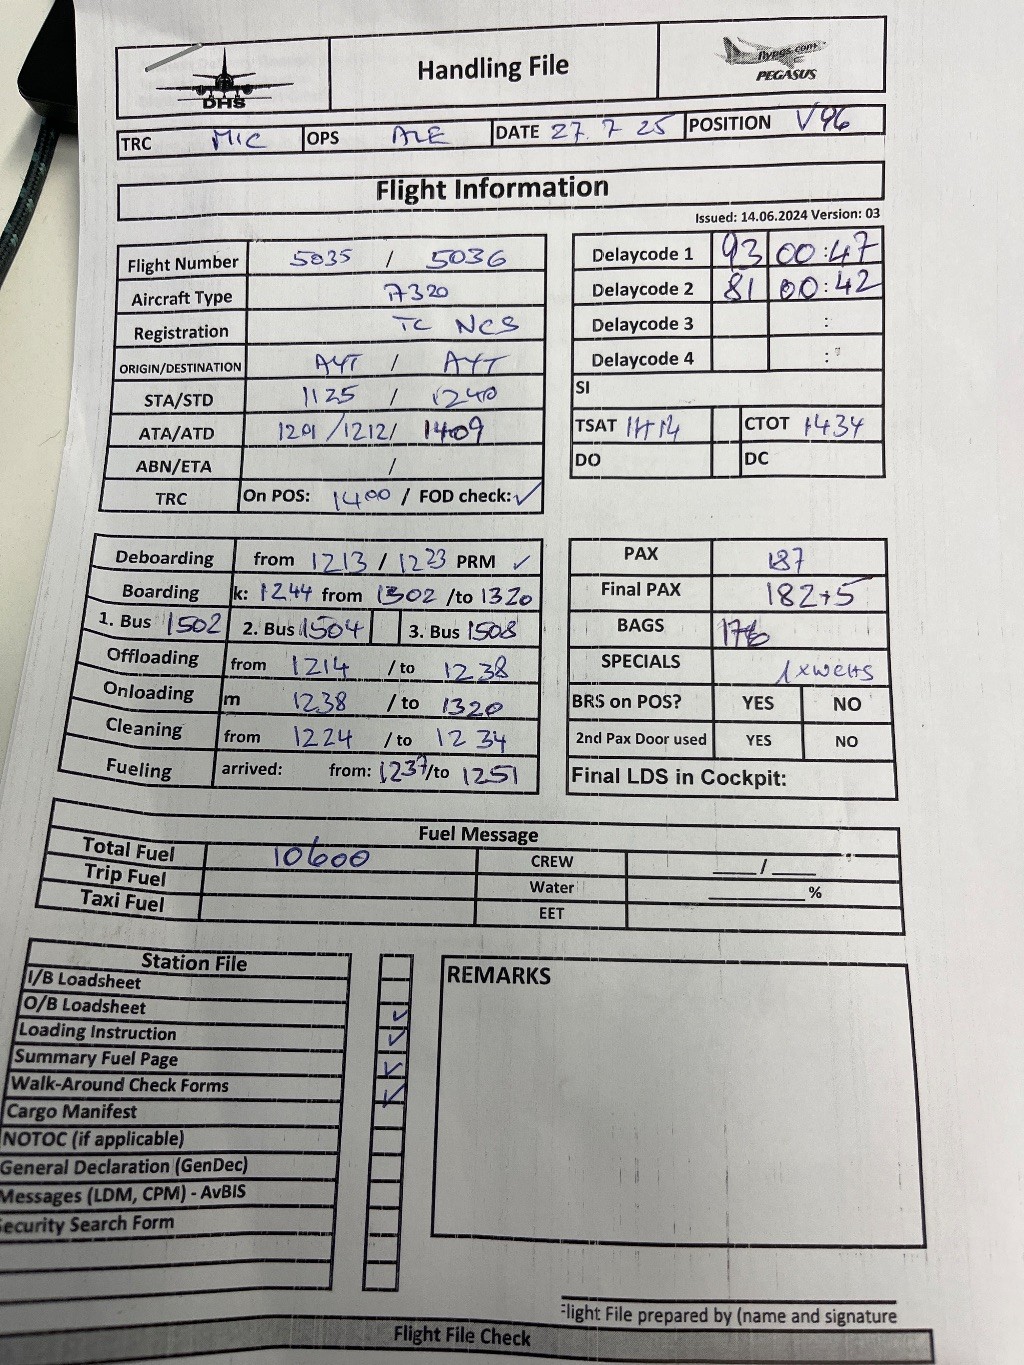 DHS
Handling File
flypgs.com
PEGASUS
TRC MIC OPS ALE DATE 27.7 25 POSITION V96
Flight Information
Issued: 14.06.2024 Version: 03
Flight Number 5035 / 5036
Aircraft Type A320
Registration TC NCS
ORIGIN/DESTINATION AYT / AYT
STA/STD 1125 / 1240
ATA/ATD 1201/1212/ 1409
ABN/ETA /
TRC On POS: 1400 / FOD check: ✓
Delaycode 1 93 00:47
Delaycode 2 81 00:42
Delaycode 3 :
Delaycode 4 :
SI
TSAT 1414 CTOT 1434
DO DC
Deboarding from 1213 / 1223 PRM ✓
Boarding k: 1244 from 1302 /to 1320
1. Bus 1502 2. Bus 1504 3. Bus 1508
Offloading from 1214 / to 1238
Onloading m 1238 / to 1320
Cleaning from 1224 / to 1234
Fueling arrived: from: 1237/to 1251
PAX 187
Final PAX 182+5
BAGS 176
SPECIALS 1x
BRS on POS? YES NO
2nd Pax Door used YES NO
Final LDS in Cockpit:
Fuel Message
Total Fuel 10600 CREW ____/____
Trip Fuel Water ________%
Taxi Fuel EET
Station File
I/B Loadsheet
O/B Loadsheet ✓
Loading Instruction ✓
Summary Fuel Page ✓
Walk-Around Check Forms ✓
Cargo Manifest
NOTOC (if applicable)
General Declaration (GenDec)
Messages (LDM, CPM) - AvBIS
ecurity Search Form
REMARKS
light File prepared by (name and signature
Flight File Check